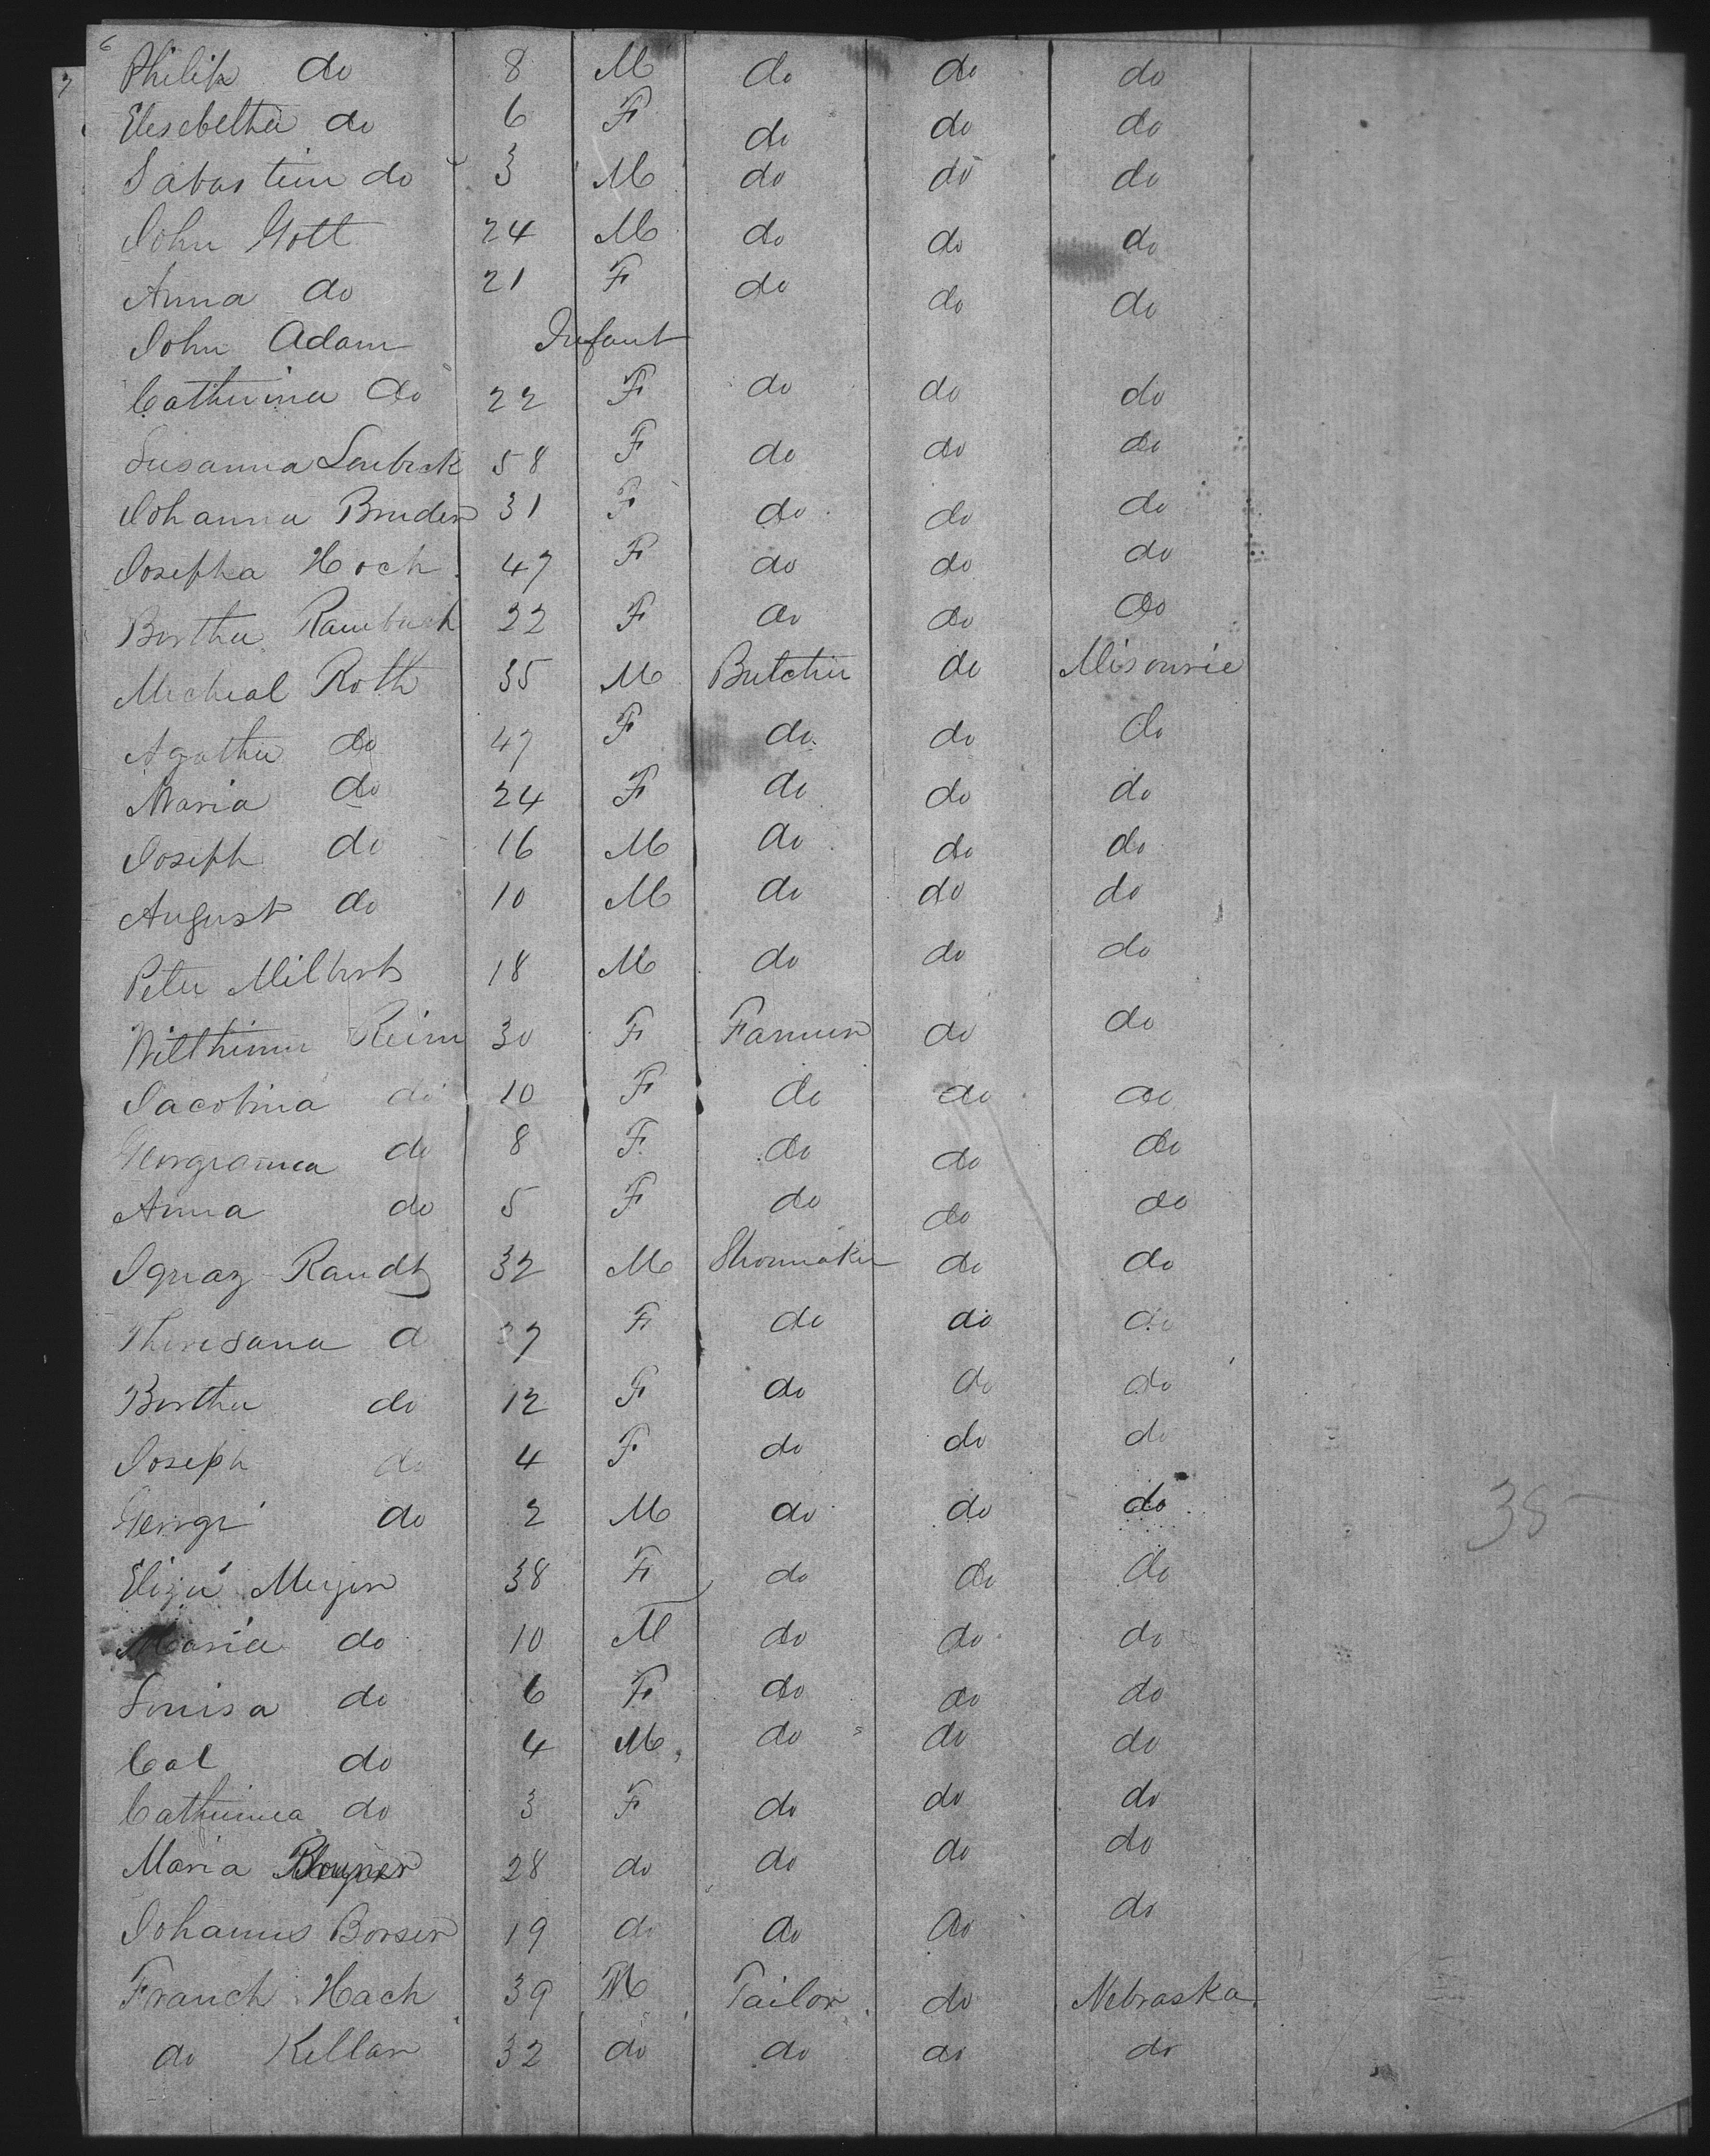 6
Philip do 8 M do do do
Elesebetha do 6 F do do do
Sabastien do 3 M do do do
John Gott 24 M do do do
Anna do 21 F do do do
John Adam Infant
Catherina do 22 F do do do
Susanna 58 F do do do
Johanna Bruder 31 F do do do
Josepha Hoch 47 F do do do
Bertha Rambach 22 F do do do
Micheal Roth 35 M Butcher do Misourie
Agatha do 47 F do do do
Maria do 24 F do do do
Joseph do 16 M do do do
August do 10 M do do do
Peter 18 M do do do
Reim 30 F Farmer do do
Jacobina do 10 F do do do
do 8 F do do do
Anna do 5 F do do do
Ignaz Raudt 32 M Shoemaker do do
Theresana d 37 F do do do
Bertha do 12 F do do do
Joseph do 4 F do do do
George do 2 M do do do
Eliza Meyer 38 F do do do
Maria do 10 M do do do
Louisa do 6 F do do do
Cal do 4 M do do do
Catherina do 3 F do do do
Maria 28 do do do do
Johanns Borser 19 do do do do
Franch Hach 39 M Tailor do Nebraska
do Kellar 32 do do do do
38